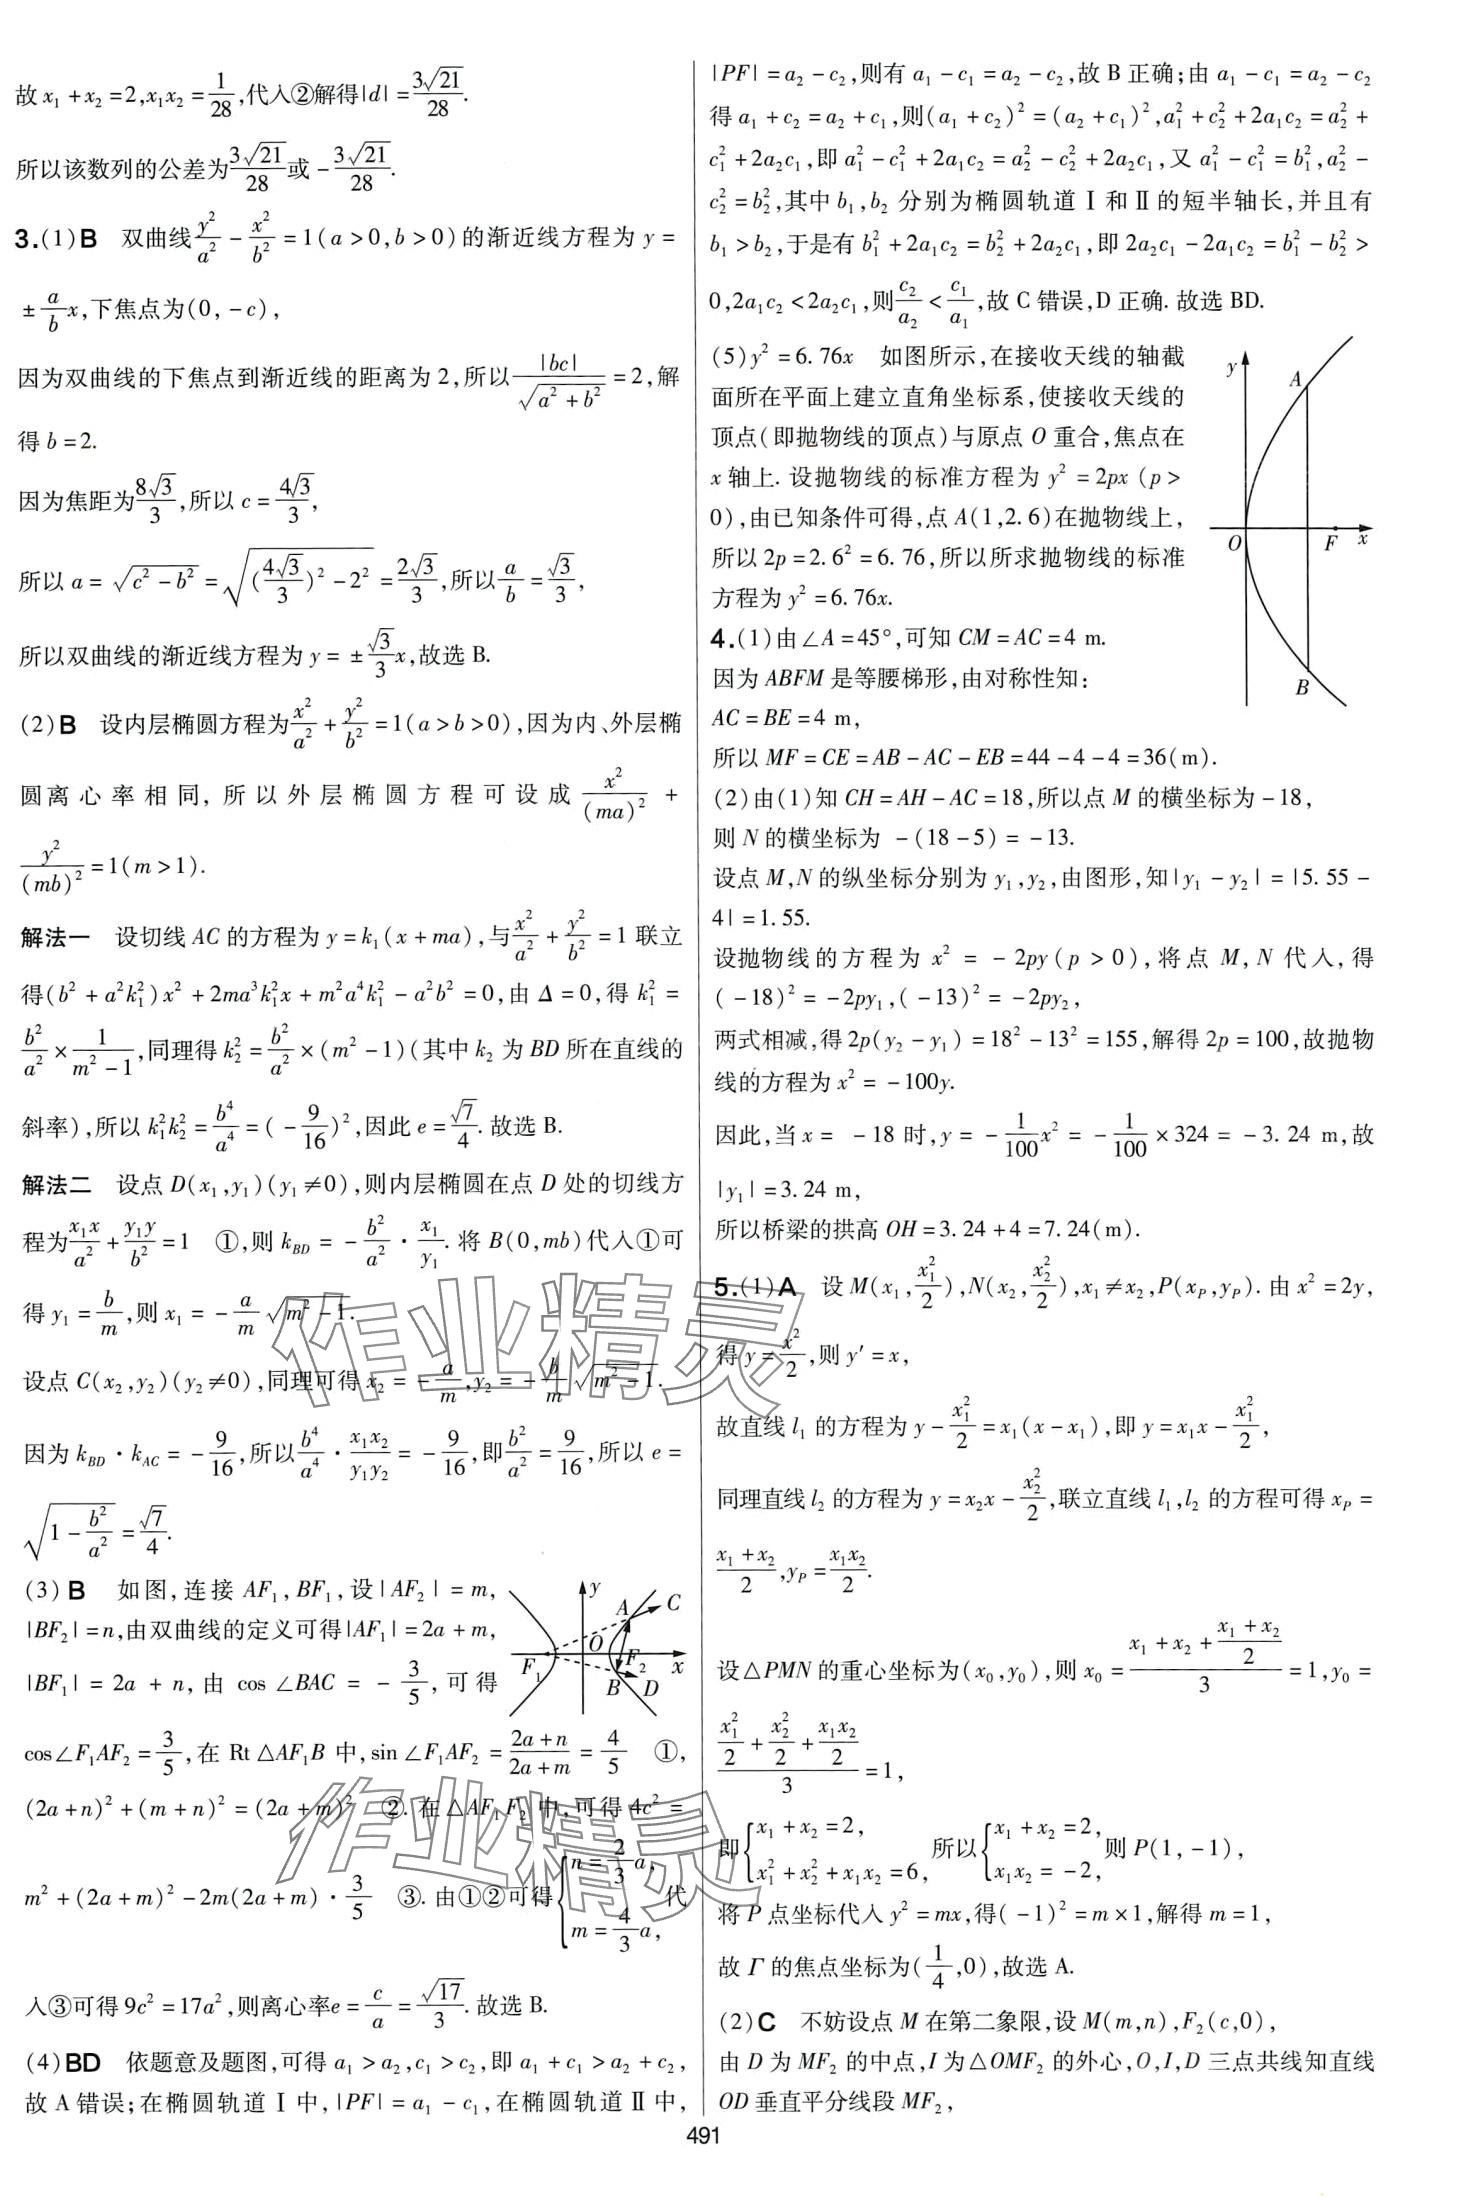 故 x₁+x₂=2,x₁x₂=1/28,代入②解得|d|=3√21/28.
所以该数列的公差为3√21/28或-3√21/28.
3.(1)B 双曲线y²/a²-x²/b²=1(a>0,b>0)的渐近线方程为 y=
±(a/b)x,下焦点为(0,-c),
因为双曲线的下焦点到渐近线的距离为 2,所以|bc|/√(a²+b²)=2,解
得 b=2.
因为焦距为8√3/3,所以 c=4√3/3,
所以 a=√(c²-b²)=√((4√3/3)²-2²)=2√3/3,所以a/b=√3/3,
所以双曲线的渐近线方程为 y=±(√3/3)x,故选 B.
(2)B 设内层椭圆方程为x²/a²+y²/b²=1(a>b>0),因为内、外层椭
圆离心率相同,所以外层椭圆方程可设成x²/(ma)²+
y²/(mb)²=1(m>1).
解法一 设切线 AC 的方程为 y=k₁(x+ma),与x²/a²+y²/b²=1 联立
得(b²+a²k₁²)x²+2ma³k₁²x+m²a⁴k₁²-a²b²=0,由 Δ=0,得 k₁²=
b²/a²×1/(m²-1),同理得 k₂²=b²/a²×(m²-1)(其中 k₂ 为 BD 所在直线的
斜率),所以 k₁²k₂²=b⁴/a⁴=(-9/16)²,因此 e=√7/4. 故选 B.
解法二 设点 D(x₁,y₁)(y₁≠0),则内层椭圆在点 D 处的切线方
程为x₁x/a²+y₁y/b²=1 ①,则 k_BD=-b²/a²·x₁/y₁. 将 B(0,mb)代入①可
得 y₁=b/m,则 x₁=-(a/m)√(m²-1).
设点 C(x₂,y₂)(y₂≠0),同理可得 x₂=-a/m,y₂=-(b/m)√(m²-1).
因为 k_BD·k_AC=-9/16,所以b⁴/a⁴·x₁x₂/y₁y₂=-9/16,即b²/a²=9/16,所以 e=
√(1-b²/a²)=√7/4.
(3)B 如图,连接 AF₁,BF₁,设|AF₂|=m,
|BF₂|=n,由双曲线的定义可得|AF₁|=2a+m,
|BF₁|=2a+n,由 cos∠BAC=-3/5,可得
y
A
C
O
F₁
F₂
x
B
D
cos∠F₁AF₂=3/5,在 Rt△AF₁B 中,sin∠F₁AF₂=(2a+n)/(2a+m)=4/5 ①,
(2a+n)²+(m+n)²=(2a+m)² ②. 在△AF₁F₂ 中,可得 4c²=
m²+(2a+m)²-2m(2a+m)·3/5 ③. 由①②可得{n=(2/3)a, m=(4/3)a, 代
入③可得 9c²=17a²,则离心率e=c/a=√17/3. 故选 B.
(4)BD 依题意及题图,可得 a₁>a₂,c₁>c₂,即 a₁+c₁>a₂+c₂,
故 A 错误;在椭圆轨道Ⅰ中,|PF|=a₁-c₁,在椭圆轨道Ⅱ中,
|PF|=a₂-c₂,则有 a₁-c₁=a₂-c₂,故 B 正确;由 a₁-c₁=a₂-c₂
得 a₁+c₂=a₂+c₁,则(a₁+c₂)²=(a₂+c₁)²,a₁²+c₂²+2a₁c₂=a₂²+
c₁²+2a₂c₁,即 a₁²-c₁²+2a₁c₂=a₂²-c₂²+2a₂c₁,又 a₁²-c₁²=b₁²,a₂²-
c₂²=b₂²,其中 b₁,b₂ 分别为椭圆轨道Ⅰ和Ⅱ的短半轴长,并且有
b₁>b₂,于是有 b₁²+2a₁c₂=b₂²+2a₂c₁,即 2a₂c₁-2a₁c₂=b₁²-b₂²>
0,2a₁c₂<2a₂c₁,则c₂/a₂<c₁/a₁,故 C 错误,D 正确. 故选 BD.
(5)y²=6.76x 如图所示,在接收天线的轴截
面所在平面上建立直角坐标系,使接收天线的
顶点(即抛物线的顶点)与原点 O 重合,焦点在
x 轴上. 设抛物线的标准方程为 y²=2px(p>
0),由已知条件可得,点 A(1,2.6)在抛物线上,
所以 2p=2.6²=6.76,所以所求抛物线的标准
方程为 y²=6.76x.
y
A
O
F
x
B
4.(1)由∠A=45°,可知 CM=AC=4 m.
因为 ABFM 是等腰梯形,由对称性知:
AC=BE=4 m,
所以 MF=CE=AB-AC-EB=44-4-4=36(m).
(2)由(1)知 CH=AH-AC=18,所以点 M 的横坐标为-18,
则 N 的横坐标为 -(18-5)=-13.
设点 M,N 的纵坐标分别为 y₁,y₂,由图形,知|y₁-y₂|=|5.55-
4|=1.55.
设抛物线的方程为 x²=-2py(p>0),将点 M,N 代入,得
(-18)²=-2py₁,(-13)²=-2py₂,
两式相减,得 2p(y₂-y₁)=18²-13²=155,解得 2p=100,故抛物
线的方程为 x²=-100y.
因此,当 x=-18 时,y=-(1/100)x²=-1/100×324=-3.24 m,故
|y₁|=3.24 m,
所以桥梁的拱高 OH=3.24+4=7.24(m).
5.(1)A 设 M(x₁,x₁²/2),N(x₂,x₂²/2),x₁≠x₂,P(x_P,y_P). 由 x²=2y,
得 y=x²/2,则 y′=x,
故直线 l₁ 的方程为 y-x₁²/2=x₁(x-x₁),即 y=x₁x-x₁²/2,
同理直线 l₂ 的方程为 y=x₂x-x₂²/2,联立直线 l₁,l₂ 的方程可得 x_P=
(x₁+x₂)/2,y_P=x₁x₂/2.
设△PMN 的重心坐标为(x₀,y₀),则 x₀=(x₁+x₂+(x₁+x₂)/2)/3=1,y₀=
(x₁²/2+x₂²/2+x₁x₂/2)/3=1,
即{x₁+x₂=2, x₁²+x₂²+x₁x₂=6, 所以{x₁+x₂=2, x₁x₂=-2, 则 P(1,-1),
将 P 点坐标代入 y²=mx,得(-1)²=m×1,解得 m=1,
故 Γ 的焦点坐标为(1/4,0),故选 A.
(2)C 不妨设点 M 在第二象限,设 M(m,n),F₂(c,0),
由 D 为 MF₂ 的中点,I 为△OMF₂ 的外心,O,I,D 三点共线知直线
OD 垂直平分线段 MF₂,
491
作业精灵
作业精灵